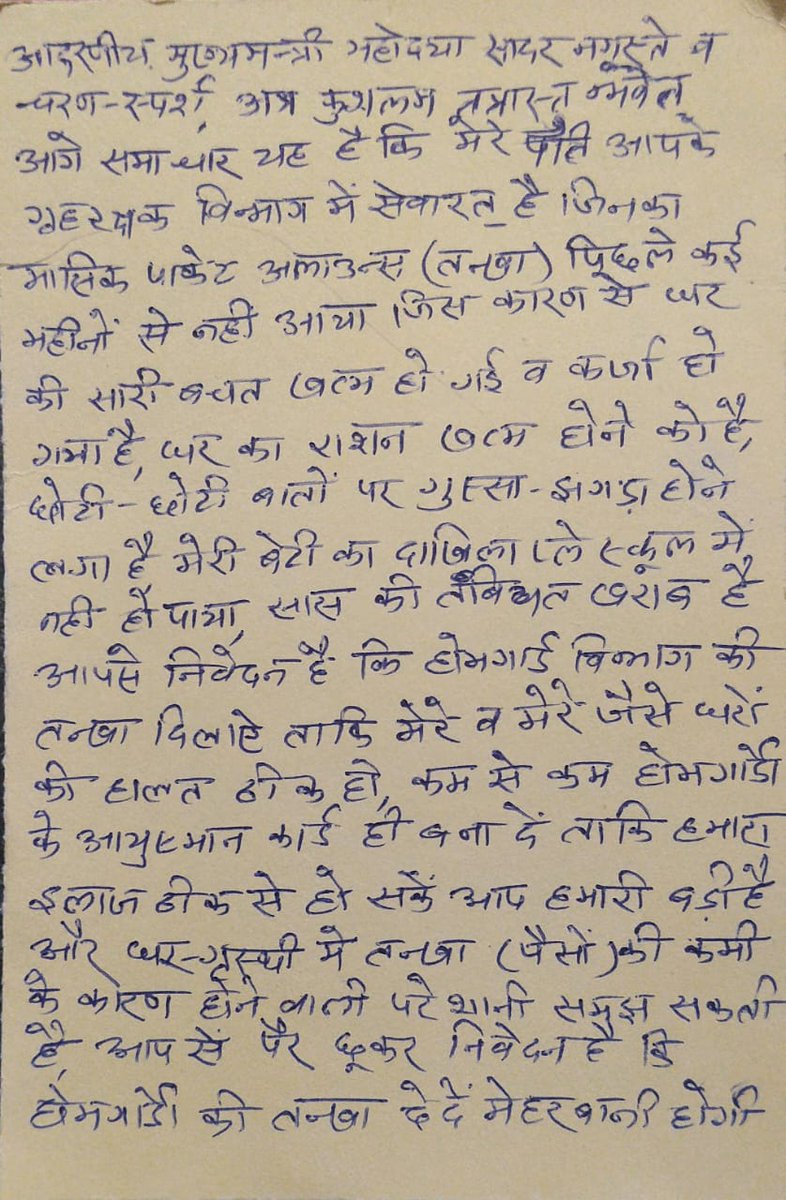 आदरणीय मुख्यमन्त्री महोदया सादर नमस्ते व
चरण-स्पर्श, अत्र कुशलम तत्रास्तु
आगे समाचार यह है कि मेरे पति आपके
गृहरक्षक विभाग में सेवारत है जिनका
मासिक पाकेट अलाउन्स (तनखा) पिछले कई
महीनों से नहीं आया जिस कारण से घर
की सारी बचत खत्म हो गई व कर्जा हो
गया है, घर का राशन खत्म होने को है,
छोटी-छोटी बातों पर गुस्सा-झगड़ा होने
लगा है मेरी बेटी का दाखिला प्ले स्कूल में
नही हो पाया, सास की तबियत खराब है
आपसे निवेदन है कि होमगार्ड विभाग की
तनखा दिलाऐ ताकि मेरे व मेरे जैसे घरों
की हालत ठीक हो, कम से कम होमगार्डो
के आयुष्मान कार्ड ही बना दें ताकि हमारा
इलाज ठीक से हो सकें आप हमारी बड़ी है
और घर-गृस्थी मे तनखा (पैसों) की कमी
के कारण होने वाली परेशानी समझ सकती
है, आप से पैर छूकर निवेदन है कि
होमगार्डो की तनखा दे दें मेहरबानी होगी